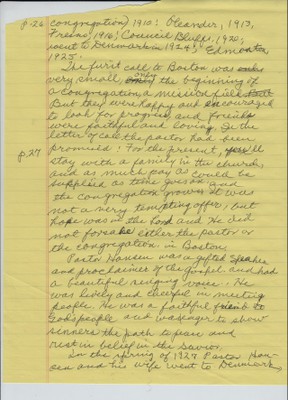 p.26 congregation) 1910: Oleander, 1913,
Fresno, 1916; Council Bluffs, 1920;
went to Denmark in 1924; Edmonton
1925.
The first call to Boston was
very small, only the beginning of
a congregation, a mission field
But they were happy and encouraged
to look for progress, and friends
were faithful and loving. In the
letter of call the pastor had been
promised: For the present, you'll
p.27 stay with a family in the church,
and as much pay as could be
supplied as things
the congregation grows. It was
not a very tempting offer, but
hope was in the Lord and He did
not forsake either the pastor or
the congregation in Boston.
Pastor Hansen was a gifted speaker
and proclaimer of the gospel and had
a beautiful ringing voice. He
was lively and cheerful in meeting
people. He was a faithful friend to
God's people and was eager to show
sinners the path to peace and
rest in belief in the Savior.
In the spring of 1927 Pastor Han-
sen and his wife went to Denmark,